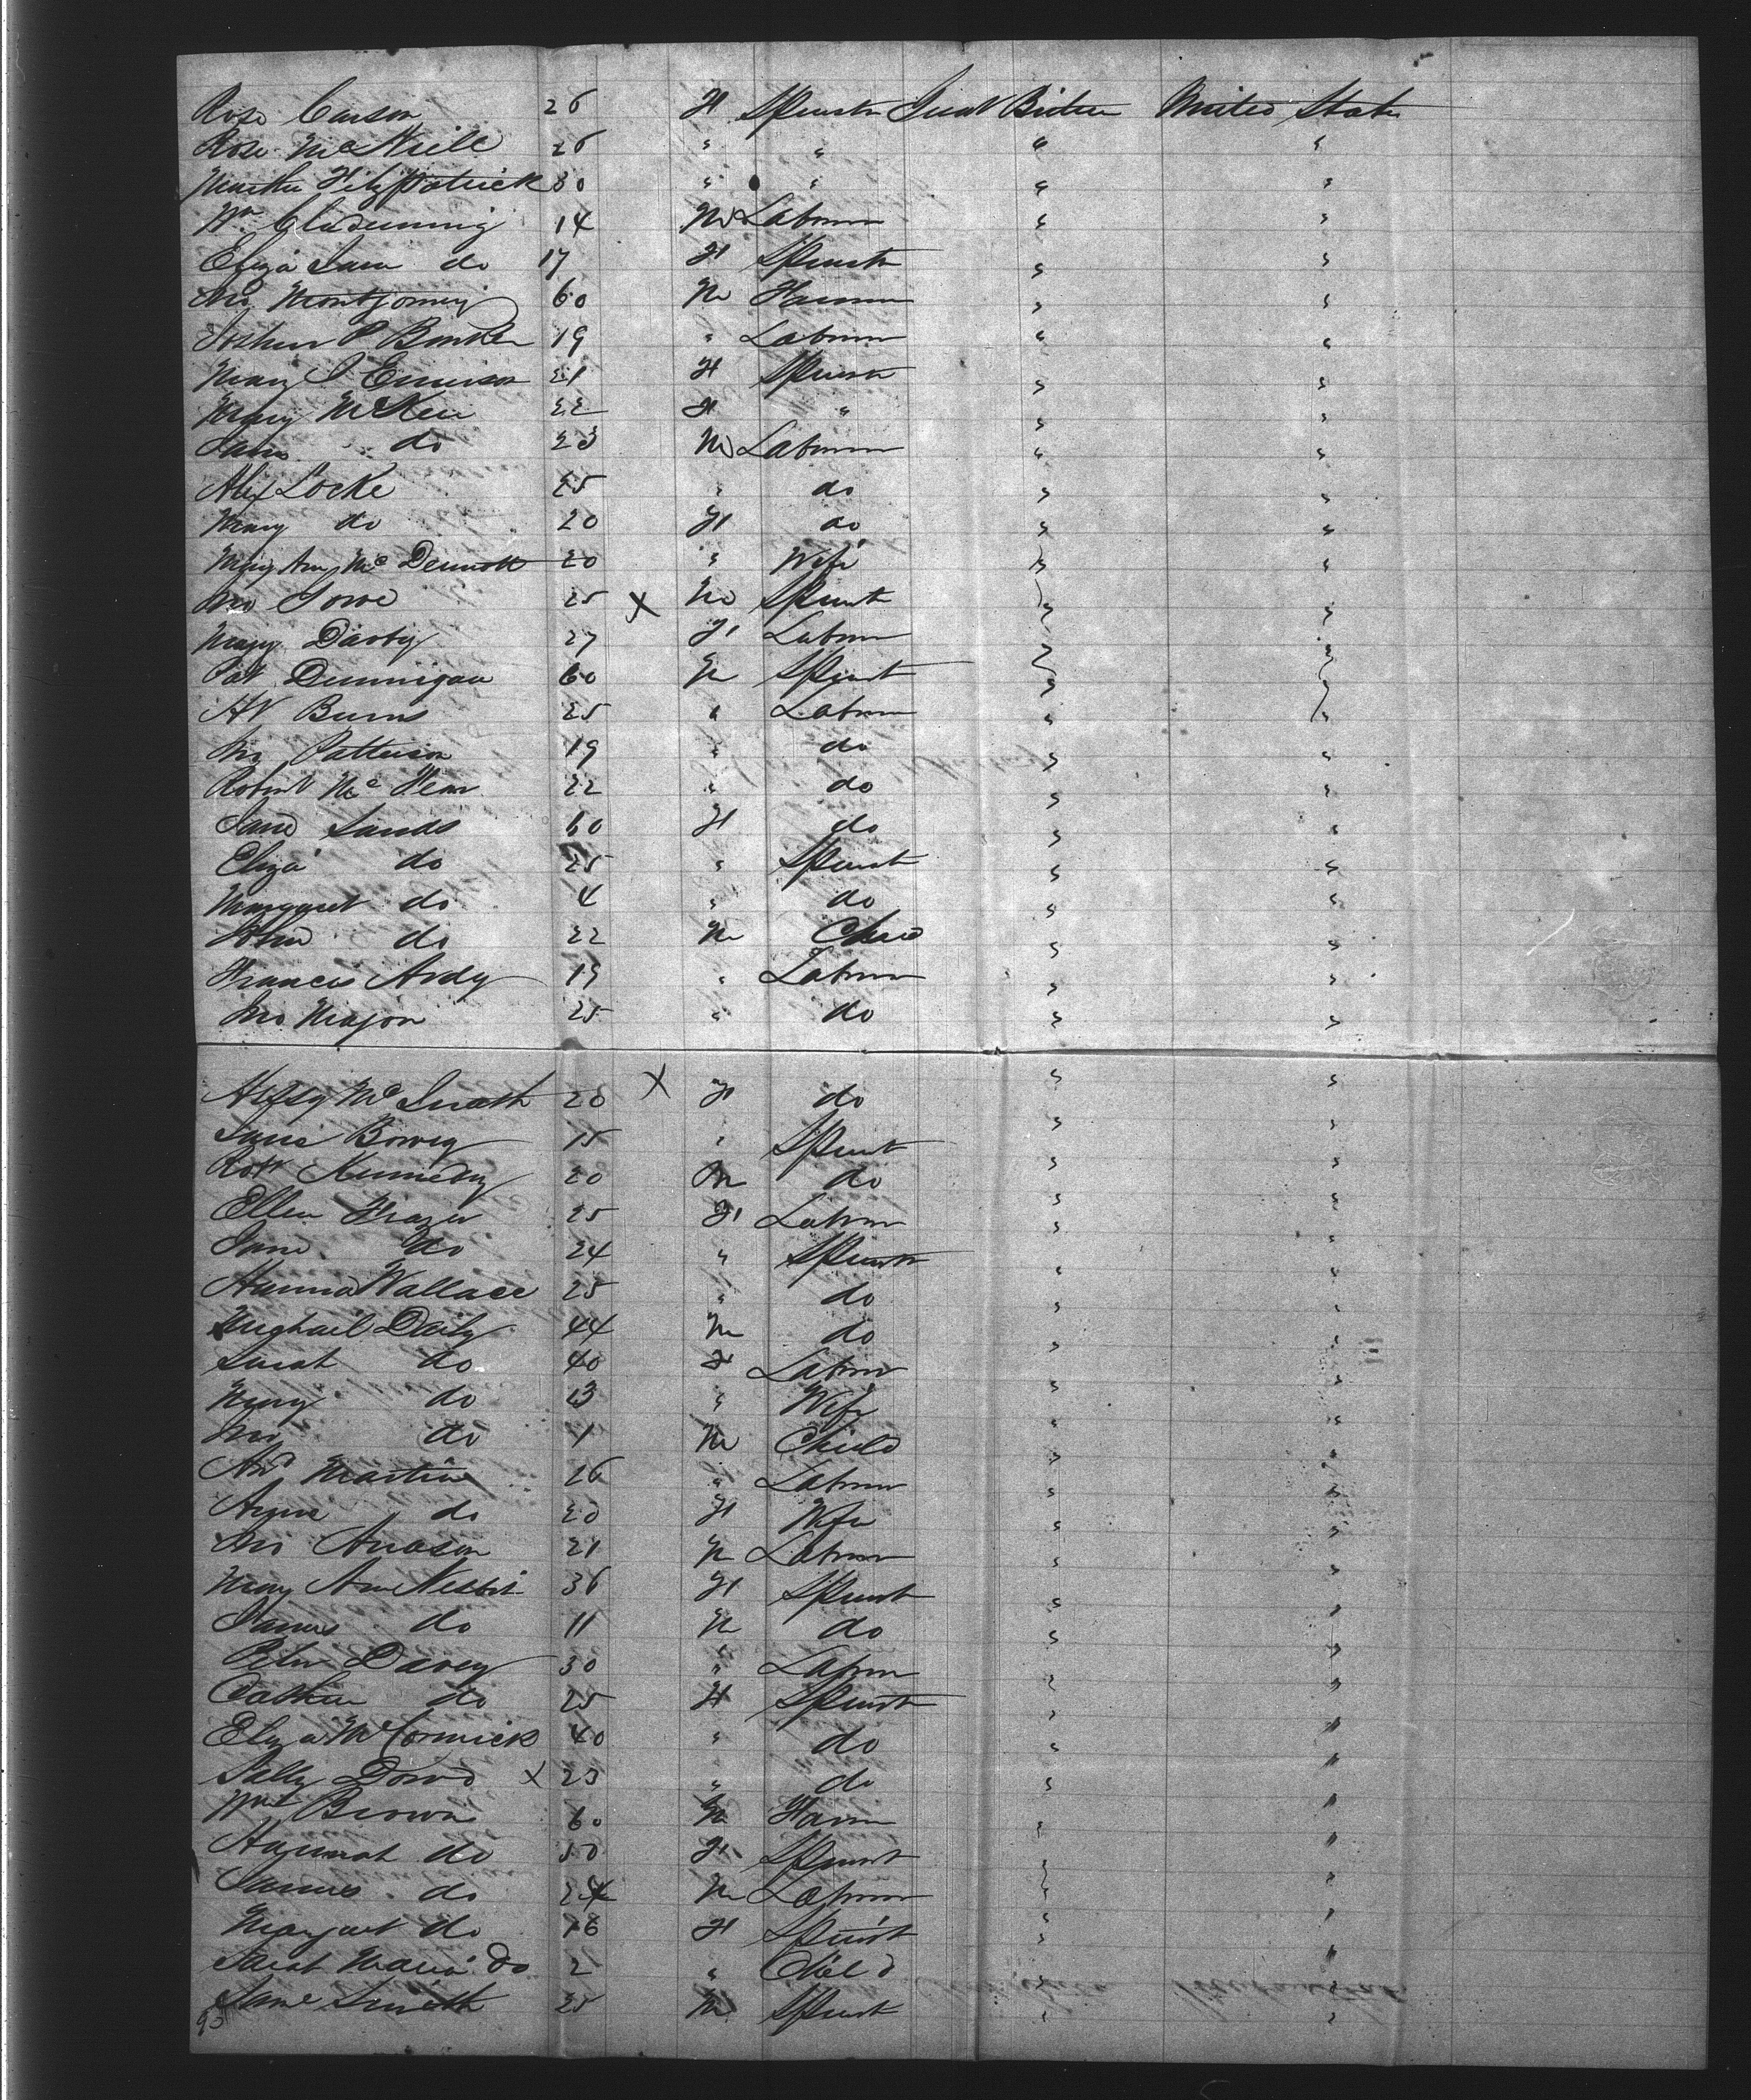 Rose Carson 26 F Spinstr Great Britain United States
Rose McNeill 26 " " " "
Martha Fitzpatrick 30 " " " "
Wm Clidenning 14 M Laborer " "
Eliza Jane do 17 F Spinstr " "
Jno Montgomery 60 M Farmer " "
Joshua P 19 " Laborer " "
Mary J Emerson 21 F Spinstr " "
Mary McKee 22 F " " "
Jane do 23 M Laborer " "
Alex Locke 25 " do " "
Mary do 20 F do " "
Mary Ann McDermott 20 " Wife " "
Jno Lowe 25 X M Spinst " "
Mary Darby 27 F Labrer " "
Pat Dunnigan 60 M Spinst " "
Burns 25 " Labrer " "
Jno Patterson 19 " do " "
Robert Mc 22 " do " "
Jane Sands 60 F do " "
Eliza do 25 " Spinst " "
Margaret do 4 " do " "
John do 22 M Child " "
Francis Ardy 19 " Labrer " "
Jno Major 25 " do " "
20 X F do " "
Jane 15 " Spinst " "
Robt Kennedy 20 M do " "
Ellen Frazer 25 F Labrer " "
Jane do 24 " Spinstr " "
Hanna Wallace 25 " do " "
Mighail Daily 44 M do " "
Sarah do 40 F Labrer " "
Mary do 13 " Wife " "
Jno do 1 M Child " "
And Martin 26 " Labrer " "
Anne do 20 F Wife " "
Jno 21 M Labrer " "
Mary Ann Nesbit 36 F Spinst " "
James do 11 M do " "
Peter Davey 30 " Labrer " "
Cathrin do 25 F Spinst " "
Eliza McCormick 40 " do " "
Sally Dowd X 23 " do " "
Wm Brown 60 M Farm " "
Hannah do 50 F Spinst " "
James do 24 M Laborer " "
Margaret do 16 F Spinst " "
Sarah Maria Do 2 " Child " "
Jane Smith 25 M Spinst " "